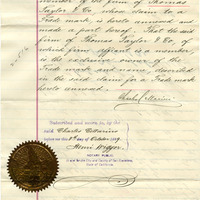 member of the firm of Thomas
Taylor & Co. whose claim to a
Trade mark, is hereto annexed and
made a part hereof. That the said
firm of Thomas Taylor & Co. of
which firm affiant is a member,
is the exclusive owner of the
Trade mark and name described
in the said claim for a Trade mark
hereto annexed.
Subscribed and sworn to, by the
said Charles
before me
this 8th day of October
Henri
NOTARY PUBLIC
In and for the City and County of San Francisco,
State of California.